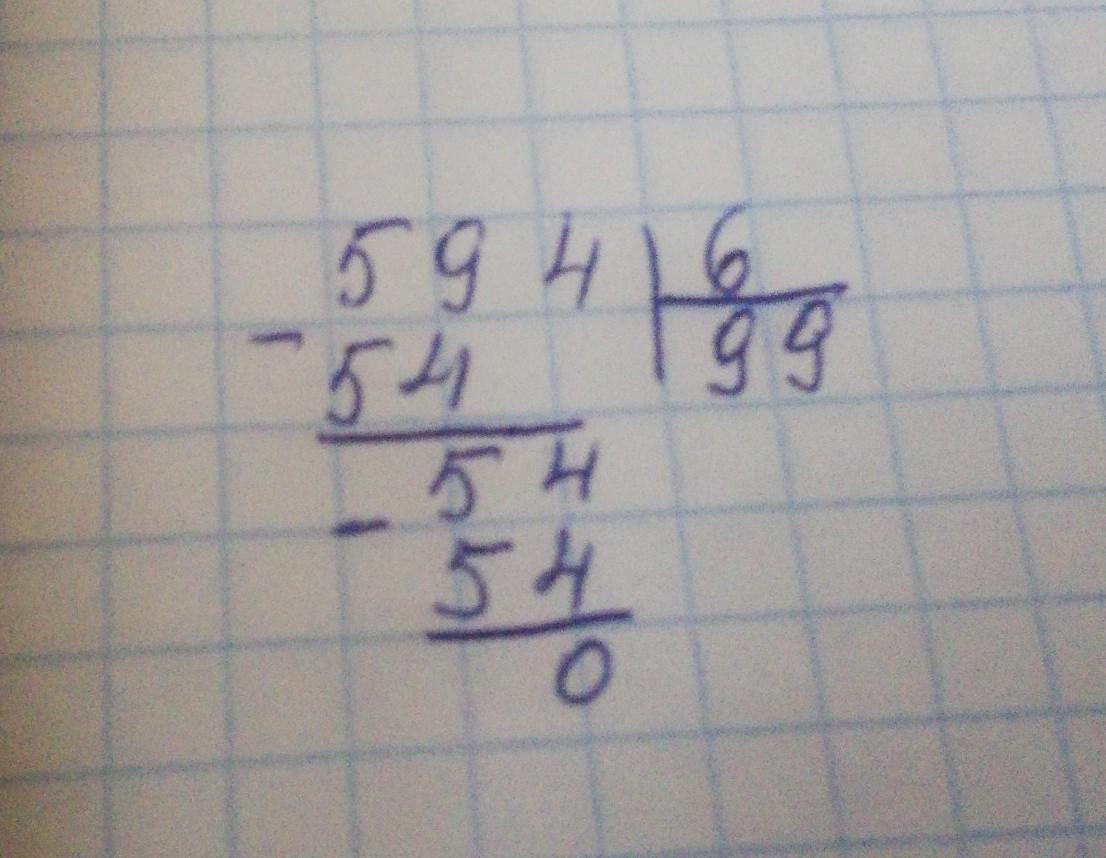 594 6
- 54 99
54
- 54
0